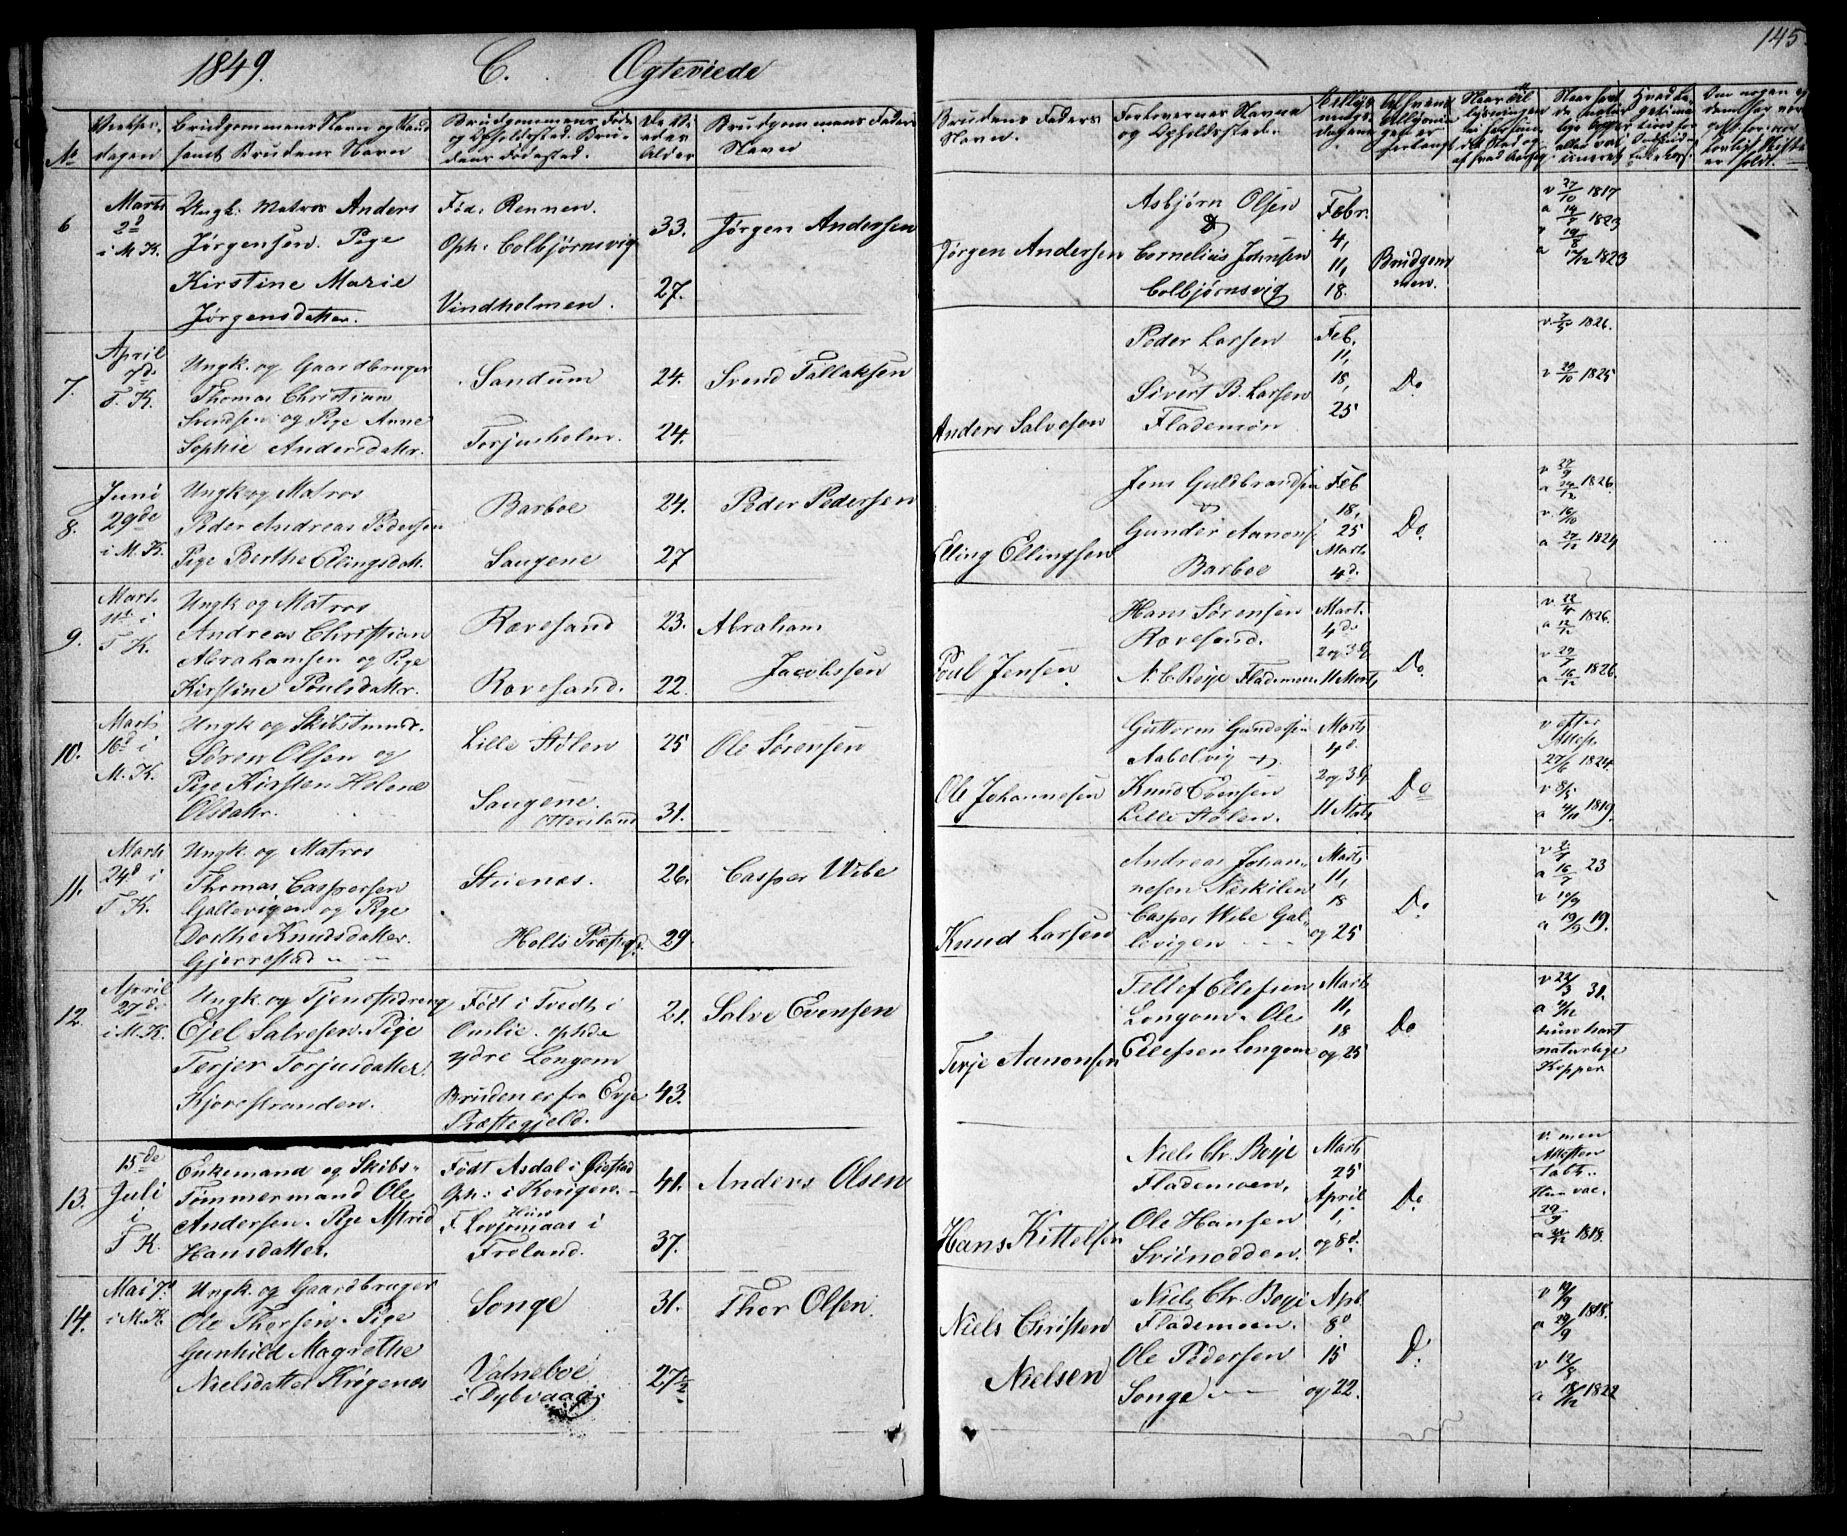 1849.
C.
Ægteviede
145.
No
Vielses-
dagen
Brudgommens Navn og Stand
samt Brudens Navn
BrudgommensFøde
og Opholdssted. Bru-
dens Fødested.
De Vi-
edes
Alder
Brudgommens Faders
Navn
Brudens Faders
Navn.
Forlovernes Navne
og Opholdssted.
6
Marts
2d
i M. K.
Ungk: Matros Anders
Jørgensen. Pige
Kirstine Marie
Jørgensdatter.
Fød: Rennen.
Oph: Colbjørnsvig
Vindholmen.
33.
27.
Jørgen Andersen
Jørgen Andersen
Asbjørn Olsen
&
Cornelius Johnsen
Colbjørnsvig
Febr.
4,
11,
18.
Brudgom
men.
v 27/10 1817
a 14/7 1823
v 19/8
a 17/12 1823
7.
April
7d
T. K.
Ungk. og Gaardbruger
Thomas Christian
Svendsen og Pige Anne
Sophie Andersdattr.
Sandum
Torjusholm.
24.
24.
Svend Tallaksen
Anders Salvesen
Peder Larsen
Sivert B. Larsen
Flademoen
Feb.
11,
18,
25
Do
v. 7/5 1826.
v 29/10 1825
8.
Juni
29de
i M. K.
Ungk og Matros
Peder Andreas Pedersen
Pige Berthe Ellingsdatr.
Barboe
Saugene
24.
27
Peder Pedersen
Elling Ellingsen
Jens Guldbrandsen
Gunder Aanons.
Barboe
Feb
18,
25
Marts
4d.
Do
v 27/9
a 24/12 1826.
v. 16/10
a 27/12 1824
9.
Marts
11te i
T. K.
Ungk og Matros
Andreas Christian
Abrahamsen og Pige
Kirstine Poulsdattr.
Rævesand
Rævesand.
23.
22.
Abraham
Jacobsen
Poul Jensen
Hans Sørensen
Rævesand.
N. C. Beije Flademoen
Mart.
4de
2 og 3 G
11 Marts
Do
v 22/4
a 12/12 1826.
v. 29/7
a 16/12 1826.
10.
Marts
16d i
M. K.
Ungk og Skibstømmr.
Søren Olsen og
Pige Kirsten Helene
Olsdatr.
Lille Stølen
Saugene.
25
31.
Ole Sørensen
Ole Johannesen
Guttorm Gundersen
Aabelvig
Knud Evensen
Lille Stølen.
Marts
4d.
2 og 3 G
11 Marts
Do
v efter
Attest.
27/6 1824.
v 8/5
a 4/11 1819.
11.
Marts
24d i
T. K.
Ungk. og Matros
Thomas Caspersen
Galtevigen og Pige
Dorthe Knudsdatter.
Gjerrestad
Stuenæs.
Holts Præstegd.
26.
29.
Casper Wibe
Knud Larsen
Andreas Johan-
nesen Næskilen
Casper Wibe Gal-
tevigen
Marts
11,
18
og 25
Do
a 16/7 23
v 14/9
a 19/9 19.
12.
April
27d.
i M. K.
Ungk og Tjenestedreng
Ejel Salvesen. Pige
Terjer Torjusdatter.
Kjørestranden.
Født i Tvedt i
Omlie. opholde
ydre Longom
Bruden er fra Evje
Præstegjeld.
21.
43.
Salve Evensen
Terje Aanonsen
Tellef Ellefsen
Longom. Ole
Ellefsen Longom
Marts
11,
18
og 25
Do
v 22/3 31.
a 4/12
hun havt
naturlige
Kopper
13.
15de
Juli
i
T K.
Enkemand og Skibs-
Tømmermand Ole
Andersen. Pige Astrid
Hansdatter.
Født Asdal i Øiestad
Oph: i Korigen.
Froland.
41.
37.
Anders Olsen
Hans Kittelsen
Niels Chr. Beije
Flademoen.
Ole Hansen
Sviinodden.
Marts
25
April
1,
og 8d.
Do
v. men
Attesten
tabt.
Hun vac.
29/9
a 21/12 1818.
14.
Mai 7d
i M. K.
Ungk. og Gaardbruger
Ole Thorsen. Pige
Gunhild Magrethe
Nielsdatter Krøgenæs
Songe
Valneboe
i Dybvaag.
31.
27½
Thor Olsen
Niels Christen
Nielsen
Niels Chr. Beije
Flademoen.
Ole Pedersen
Songe
Apl.
8d
15
og 22.
Do
v 14/9
a 29/9 1818.
v 12/8
a 18/12 1822